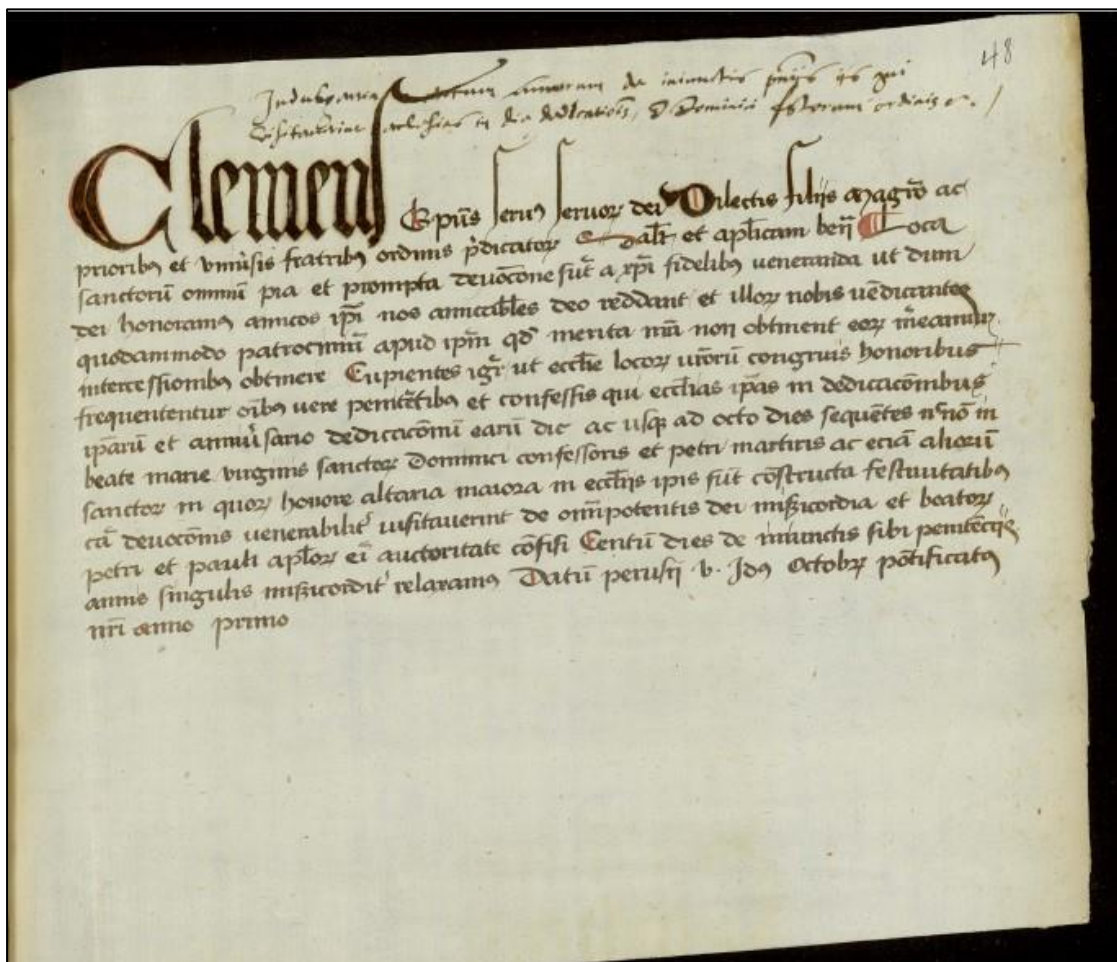 48
Indulgencia centum annorum de iniunctis pnijs iis qui
visitaverint ecclesias in die dedicationis, S. Dominici fratrum ordinis
Clemens Epūs seruꝰ seruoꝝ dei Dilectis filijs Magr̄o ac
prioribꝫ et vniu̓sis fratribꝫ ordinis p̄dicatoꝝ Salt̄ et apl̄icam ben̄ Loca
sanctorū omniū pia et prompta deuoc̄one sūt a xp̄i fidelibꝫ veneranda ut dum
dei honoramꝰ amicos ip̄i nos amicabiles deo reddant et illoꝝ nobis uēdicantes
quodammodo patrociniū apud ip̄m qd̄ merita nr̄a non obtinent eoꝝ m̓eamur
intercessionibꝫ obtinere Cupientes igr̄ ut eccl̄ie locoꝝ ur̄orū congruis honoribus
frequententur oībꝫ uere penitētibꝫ et confessis qui ecclīas ip̄as in dedicacōnibus
ip̄arū et anniu̓sario dedicacōnū earū die ac usqꝫ ad octo dies sequētes necnō in
beate marie virginis sanctoꝝ Dominici confessoris et petri martiris ac eciā aliorū
sanctoꝝ in quoꝝ honore altaria maiora in eccl̄ijs ip̄is sūt cōstructa festiuitatibꝫ
cā deuocōnis uenerabilit̓ uisitauerint de om̄ipotentis dei mīsicordia et beatoꝝ
petri et pauli apl̄oꝝ eiꝰ auctoritate cōfisi Centū dies de iniunctis sibi penitēcijs
annis singulis misericordit̓ relaxamꝰ Datū perusij v. Idꝰ Octobꝝ pōtificatꝰ
nr̄i anno primo